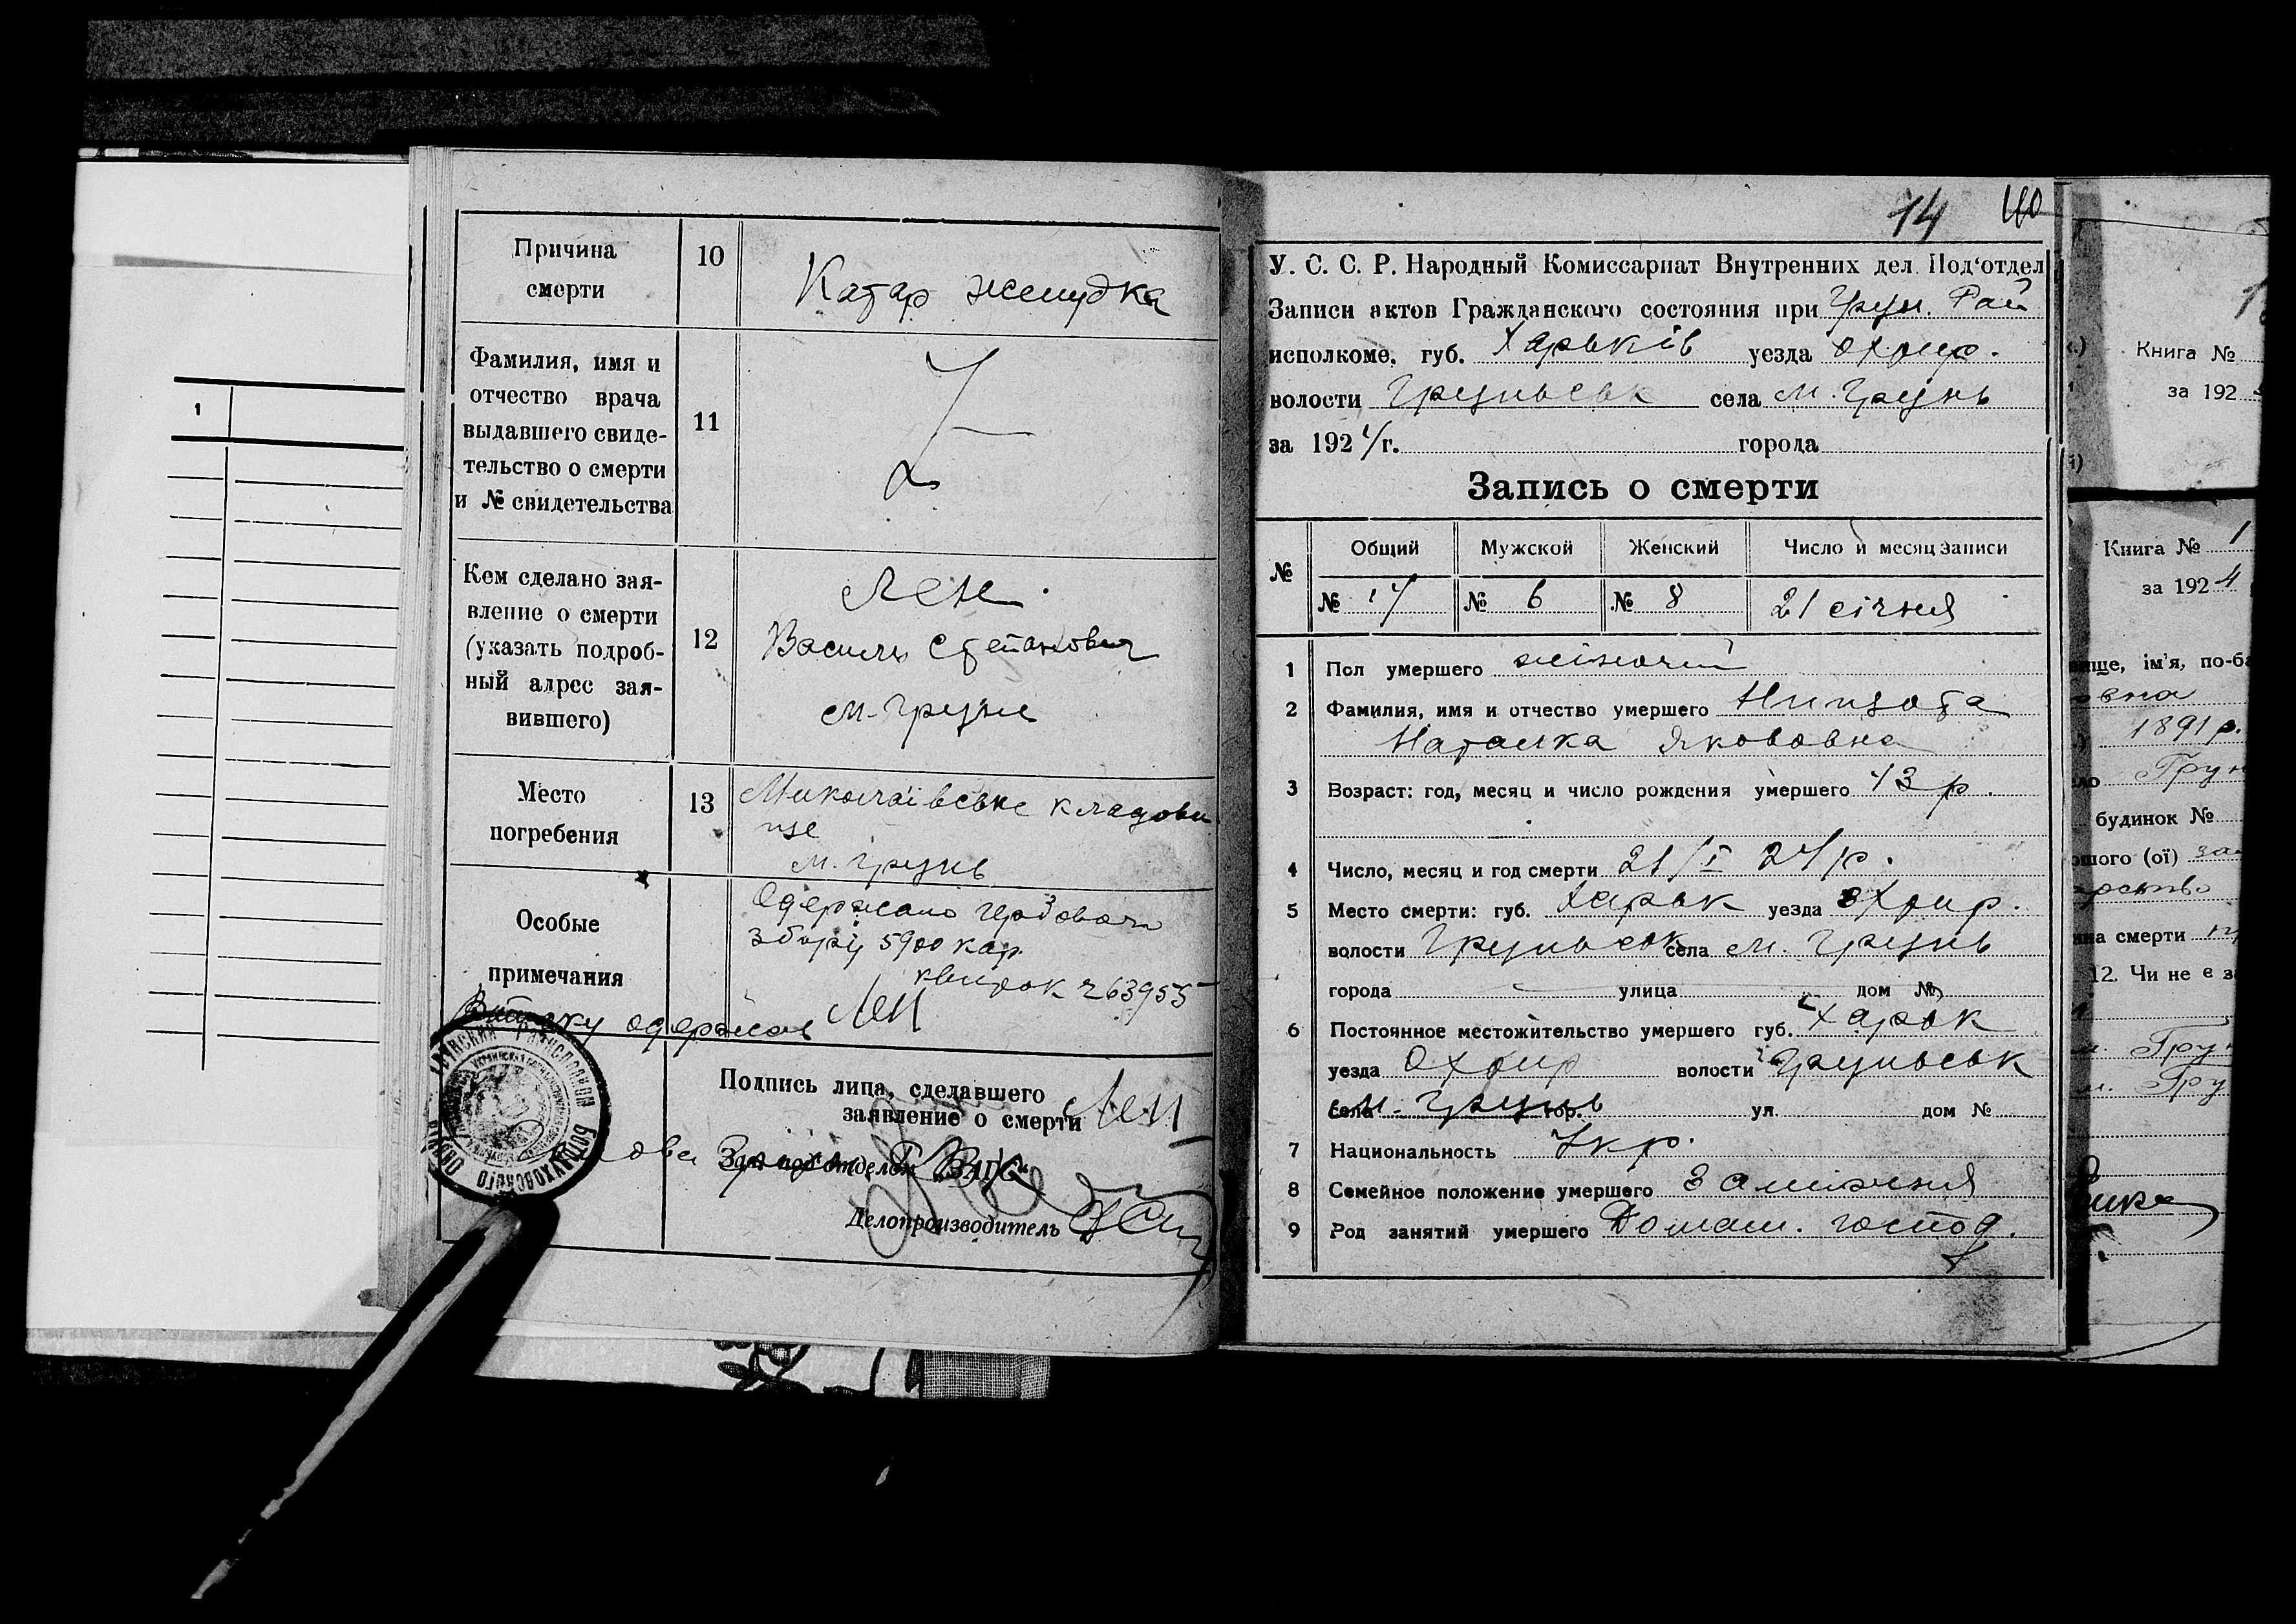 1
Причина
смерти
10
Катар желудка
Фамилия, имя и
отчество врача
выдавшего свиде-
тельство о смерти
и № свидетельства
11
Кем сделано зая-
вление о смерти
(указать подроб-
ный адрес зая-
вившего)
12
Лен
Василь Степанович
м. Грунь
Место
погребения
13
Миколаівське кладови
ще
м. Грунь
Особые
примечания
Одержано
збору 5900 кар.
квиток 263955
одержал Лен
Подпись лица, сделавшего
заявление о смерти Лен
Зав. под'отделом „ЗАГС“
Делопроизводитель
14 40
У. С. С. Р. Народный Комиссариат Внутренних дел Под'отдел
Записи актов Гражданского состояния при Грун. Рай
исполкоме, губ. Харьків уезда Охтир.
волости Груньськ села м. Грунь
за 1924 г. города
Запись о смерти
№ Общий Мужской Женский Число и месяц записи
№ 14 № 6 № 8 21 січня
1 Пол умершего жіночий
2 Фамилия, имя и отчество умершего
Наталка Якововна
3 Возраст: год, месяц и число рождения умершего 43 р.
4 Число, месяц и год смерти 21/I 24 р.
5 Место смерти: губ. Харьк уезда Охтир.
волости Груньськ села м. Грунь
города улица дом №
6 Постоянное местожительство умершего губ. Харьк
уезда Охтир волости Груньськ
села м. Грунь гор. ул. дом №
7 Национальность Укр.
8 Семейное положение умершего Заміжня
9 Род занятий умершего Домаш. господ.
Книга №
за 192
Книга № 1
за 1924
ім'я, по-ба
1891 р.
Грун
будинок №
шого (ої)
смерти
12. Чи не є з
Гру